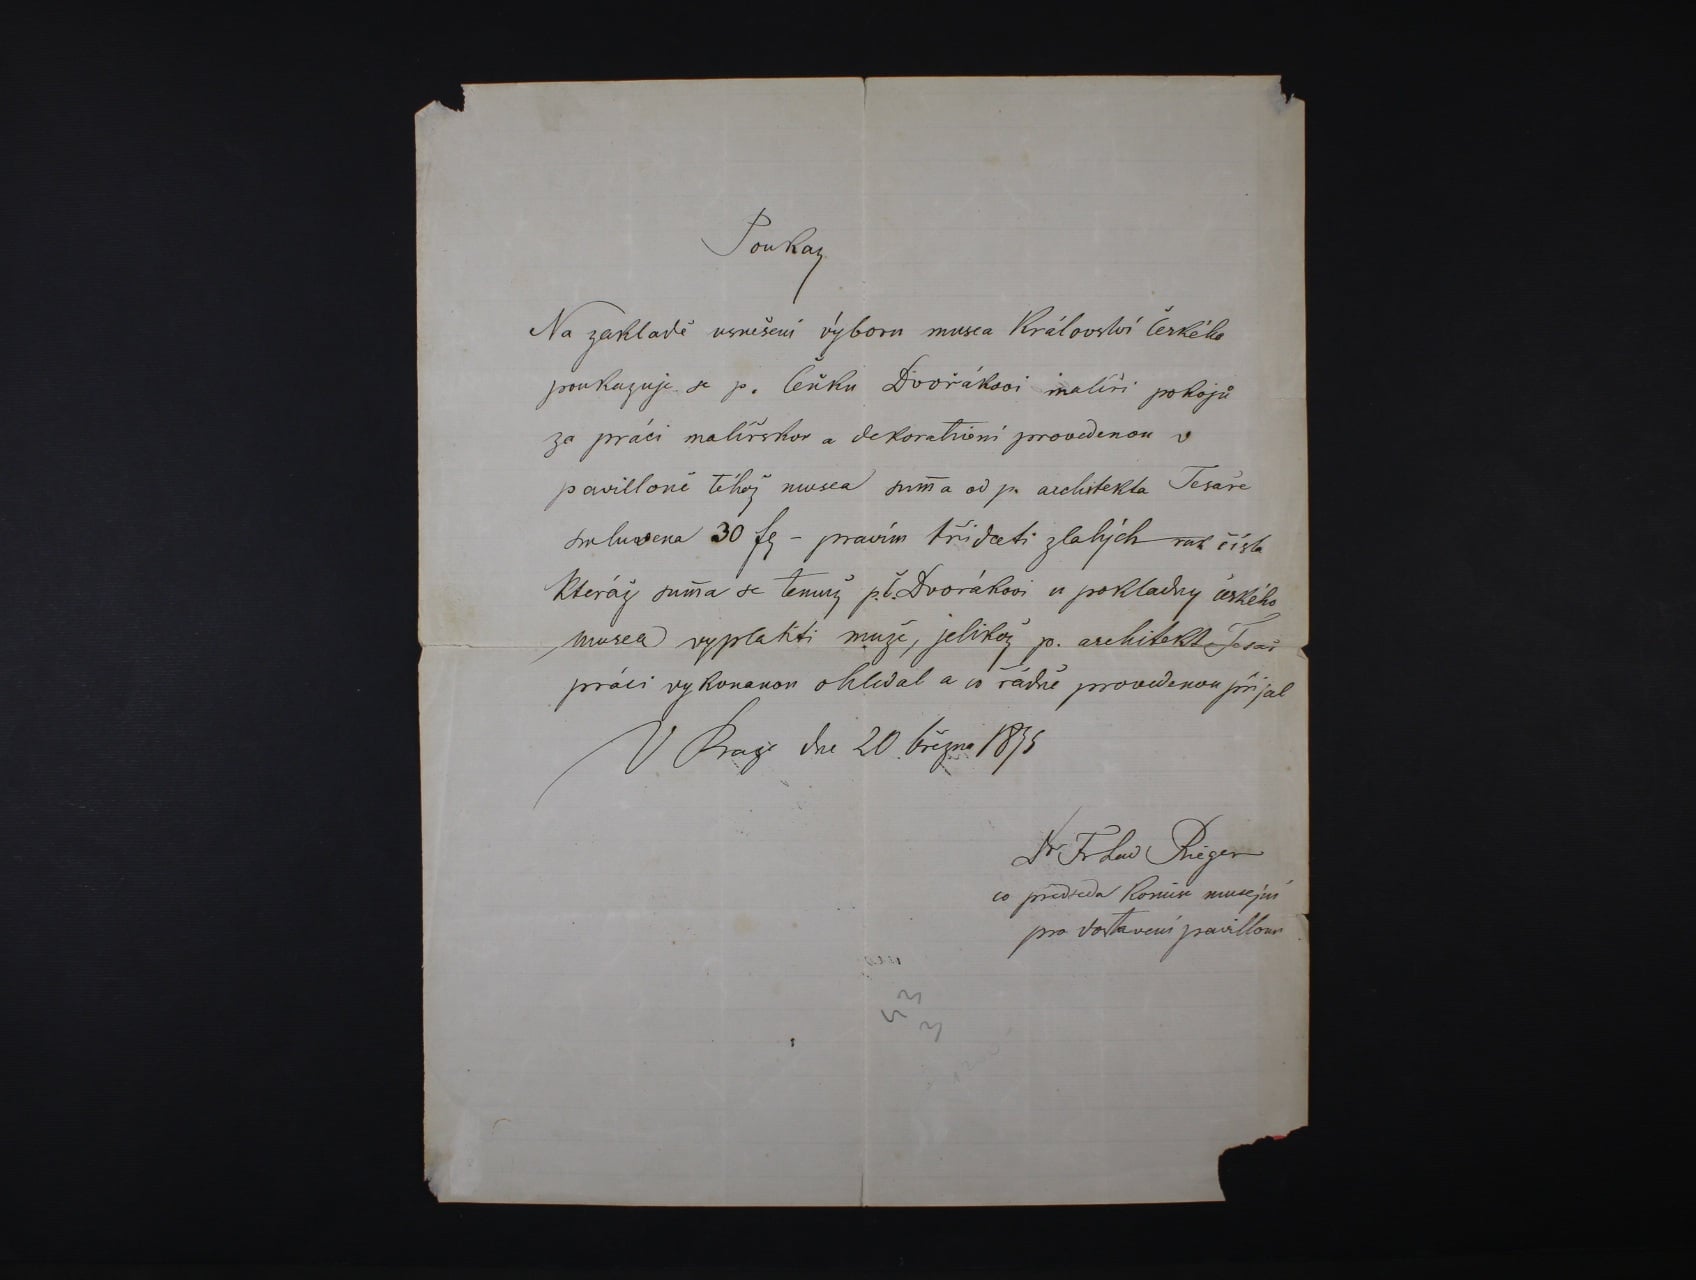 Poukaz
Na zakladě usnešení výboru musea Království Českého
poukazuje se p. Čeňku Dvořákovi malíři pokojů
za práci malířskou a dekorativní provedenou v
pavilloně téhož musea sum̄a od p. architekta Tesaře
smluvena 30 fl – pravím třidceti zlatých čísla
kteráž sum̄a se temuž p. č. Dvorákovi u pokladny českého
musea vyplatiti muže, jelikož p. architekt Tesař
práci vykonanou ohledal a co řádně provedenou přijal
V Praze dne 20 března 1895
Dr Fr Lad Rieger
co předseda komise musejní
pro vystavení pavillonu